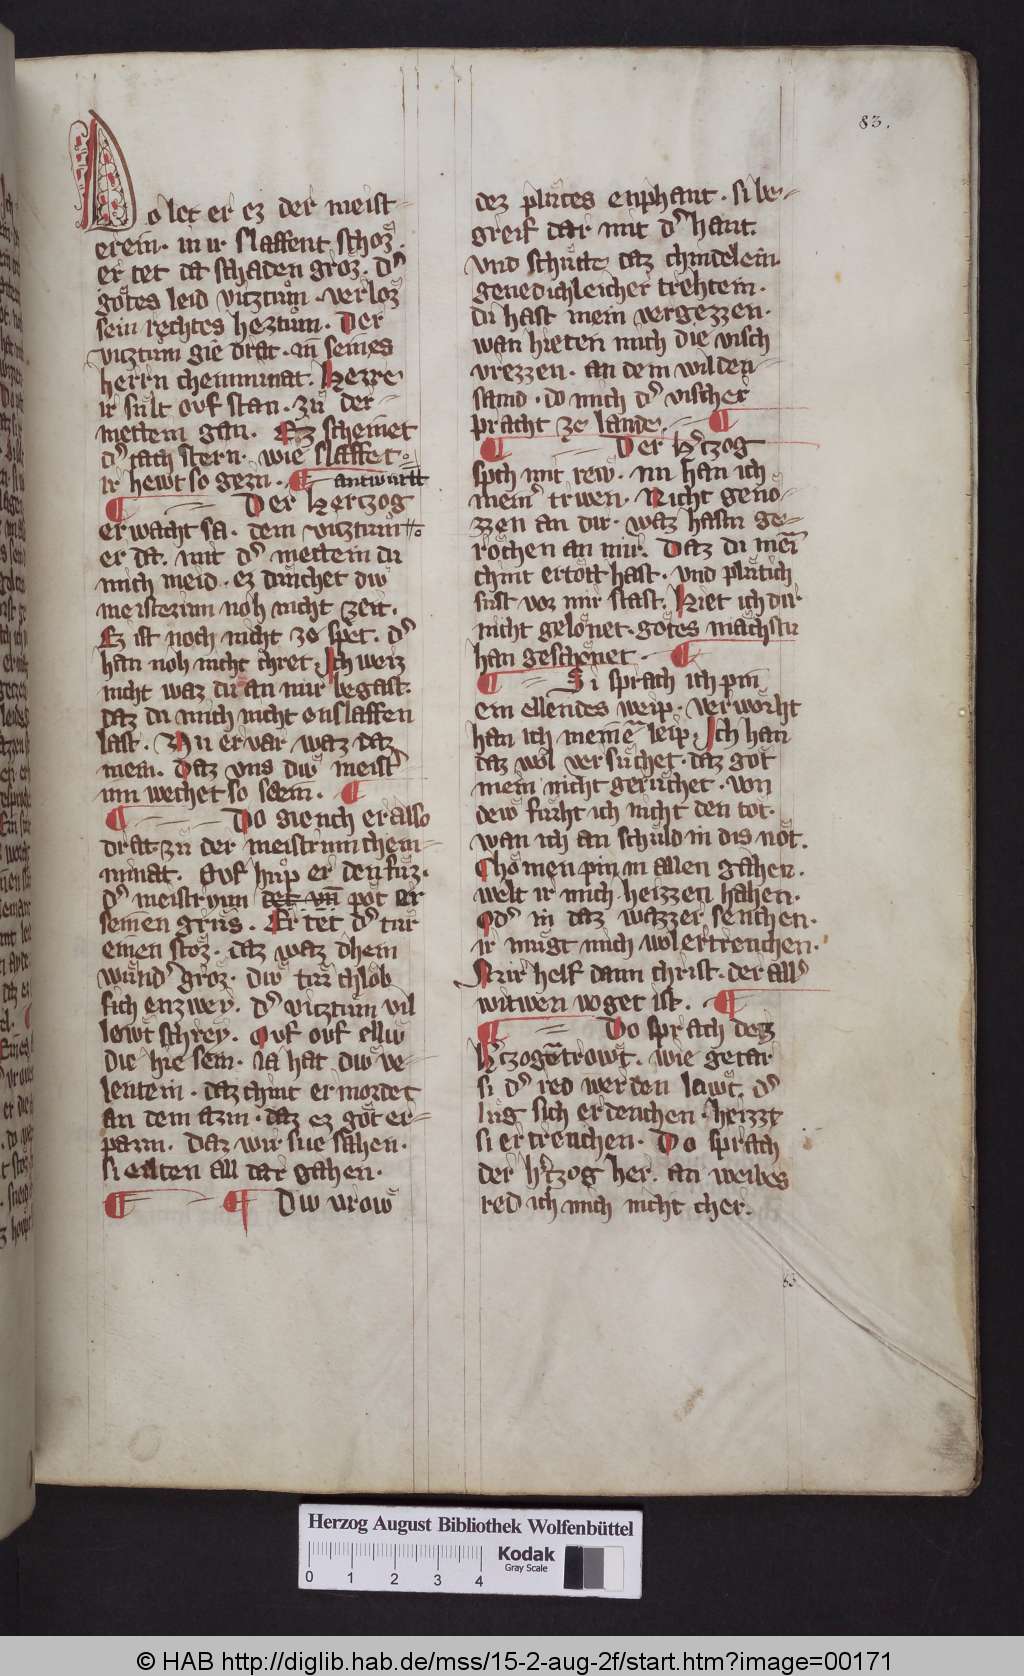 83.
Do let er ez der meist
erein. in ir slaffent schoz.
er tet da schaden groz. d͛
gotes leid vitztum. verloz
sein rechtes heztum. Der
vitztum gie drat. in seines
herrn chemminat. Herre
ir sult ouf stan. zu der
mettein gan. Ez scheinet
d͛ tach stern. wie slaffet
ir hewt so gern.
antwurtt
Der Hertzog
erwacht sa. dem vitztum
er da. mit d͛ mettein du
mich meid. ez dunchet diw
meisterinn noh nicht zeit.
Ez ist noch nicht ze spet. d͛
han noh nicht chret. Ich weiz
nicht waz du an mir begast.
daz du mich nicht enslaffen
last. Nu ervar waz daz
mein. Daz vns diw meist͛
inn wechet so seern.
Do giench er also
drat zu der meistrinn chem
minat. Auf hup er den fuz.
d͛ meistrinn tet vn̄ pot er
seinen grus. Er tet d͛ tur
einen stoz. daz waz dhein
wund͛ groz. diw tur chlob
sich enzwey. d͛ vitztum vil
lewt schrey. Ouf ouf elliw
die hie sein. Ja hat diw ve
lentein. daz chint ermordet
an dem arm. daz ez got er
parm. Daz wir sue sahen.
si eilten all dar gahen.
Diw vrow
dez plutes enphant. si be
greif dar mit d͛ hant.
vnd schutte daz chindelein
genedichleicher trehtein.
du hast mein vergezzen.
wan hieten mich die visch
vrezzen. an dem wilden
sand. do mich d͛ vischer
pracht ze lande.
Der h͛tzog
spch mit rew. nu han ich
mein͛ trwen. Nicht geno
zzen an dir. waz hastu ge
rochen an mir. Daz du mei͂
chint ertott hast. vnd plutich
sust vor mir stast. Hiet ich dir
nicht gelonet. gotes mächstu
han geschonet.
Si sprach ich pin
ein ellendes weip. verworht
han ich meinē leip. Ich han
daz wol versuchet. daz got
mein nicht geruchet. von
dew furht ich nicht den tot.
wan ich an schuld in dis not.
Chomen pin in allen gahen.
welt ir mich heizzen hahen.
Od͛ in daz wazzer senchen.
ir mugt mich wol ertrenchen.
Mir helf dann christ. der all͛
witwen voget ist.
Do sprach dez
h͛tzogē trowt. wie getar
si d͛ red werden lawt. d͛
lug sich erdenchen. heizzt
si ertrenchen. Do sprach
der h͛tzog her. an weibes
red ich mich nicht cher.
83
Herzog August Bibliothek Wolfenbüttel
0 1 2 3 4
Kodak
Gray Scale
© HAB http://diglib.hab.de/mss/15-2-aug-2f/start.htm?image=00171